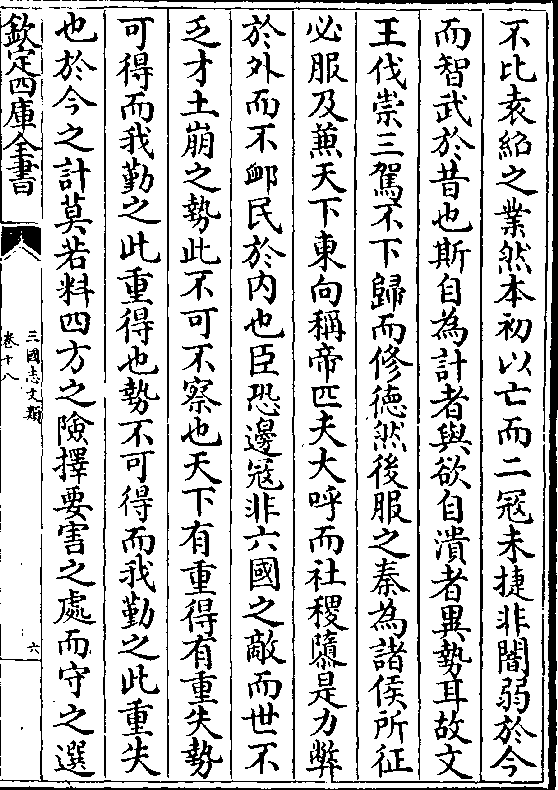 不比袁紹之業然本初以亡而二冦未捷非闇弱於今
而智武於昔也斯自為計者與欲自潰者異勢耳故文
王伐崇三駕不下歸而修徳然後服之秦為諸侯所征
必服及兼天下東向稱帝匹夫大呼而社稷隳是力弊
於外而不䘏民於内也臣恐邊冦非六國之敵而世不
乏才土崩之勢此不可不察也天下有重得有重失勢
可得而我勤之此重得也勢不可得而我勤之此重失
也於今之計莫若料四方之險擇要害之處而守之選
欽定四庫全書
三國志文類
卷十八
六